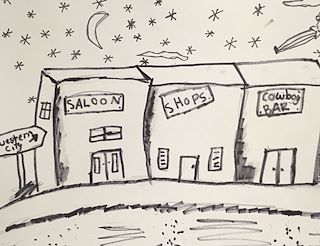 SALOON
SHOPS
COWBOY
BAR
western
City